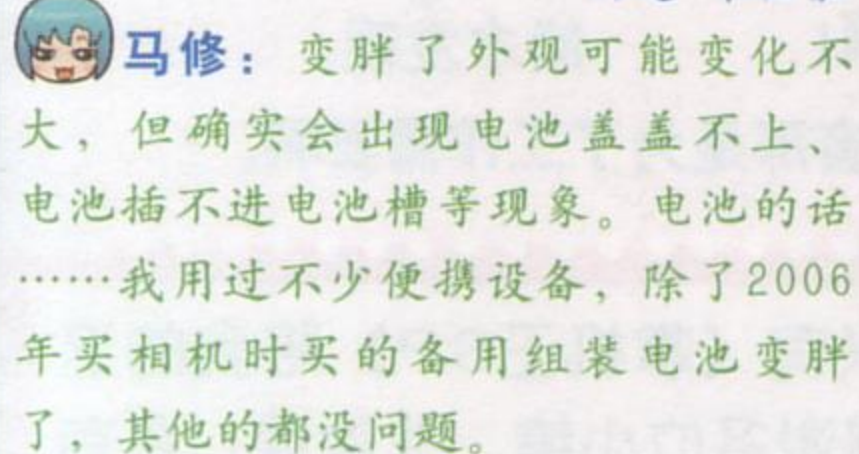 马修：变胖了外观可能变化不
大，但确实会出现电池盖盖不上、
电池插不进电池槽等现象。电池的话
……我用过不少便携设备，除了2006
年买相机时买的备用组装电池变胖
了，其他的都没问题。